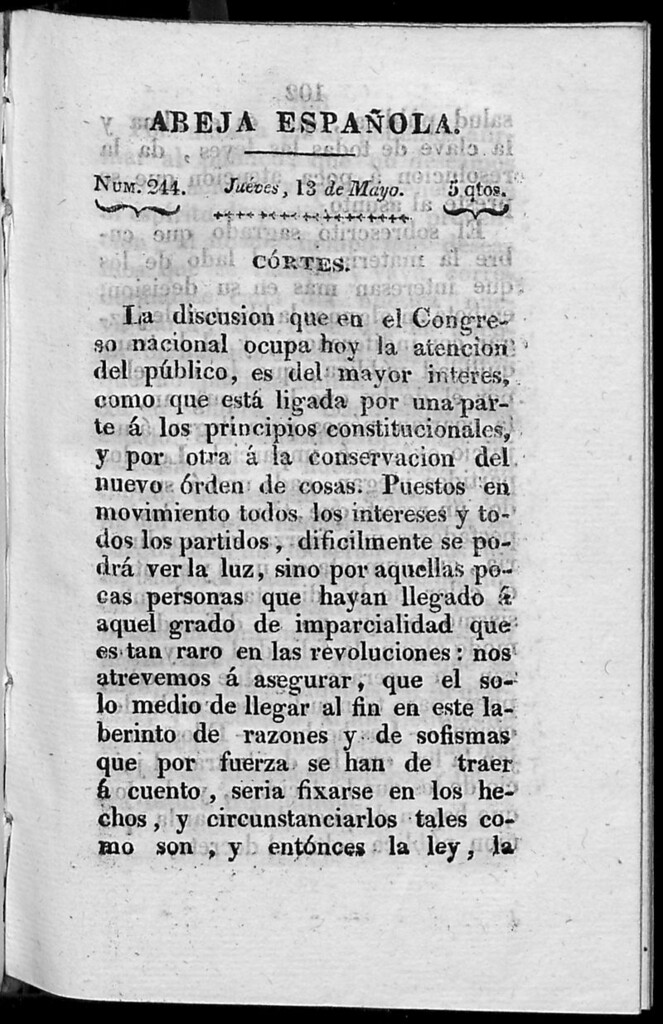 ABEJA ESPAÑOLA.
NUM. 244. Jueves, 13 de Mayo. 5 qtos.
CÓRTES.
La discusion que en el Congre-
so nacional ocupa hoy la atencion
del público, es del mayor interes,
como que está ligada por una par-
te á los principios constitucionales,
y por otra á la conservacion del
nuevo órden de cosas. Puestos en
movimiento todos los intereses y to-
dos los partidos, dificilmente se po-
drá ver la luz, sino por aquellas po-
cas personas que hayan llegado á
aquel grado de imparcialidad que
es tan raro en las revoluciones: nos
atrevemos á asegurar, que el so-
lo medio de llegar al fin en este la-
berinto de razones y de sofismas
que por fuerza se han de traer
á cuento, seria fixarse en los he-
chos, y circunstanciarlos tales co-
mo son, y entónces la ley, la